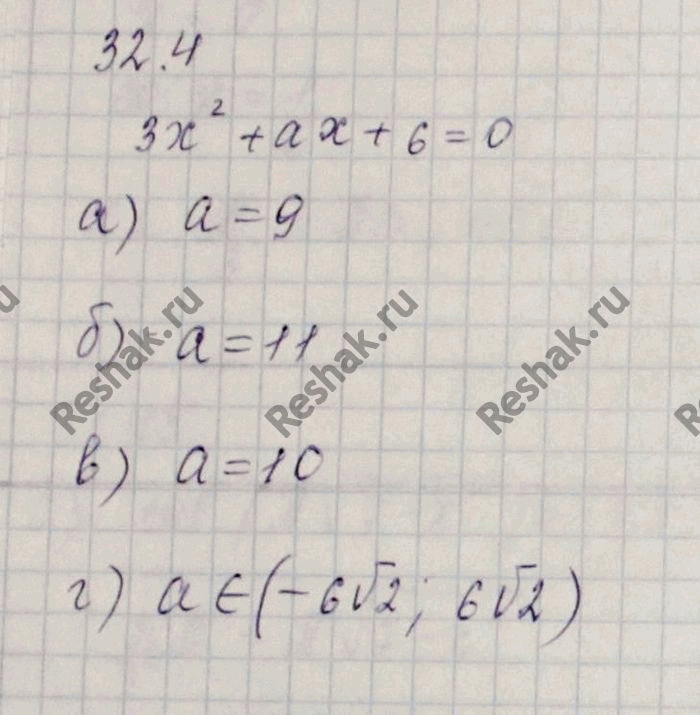 32.4
3x² + ax + 6 = 0
а) a = 9
б) a = 11
в) a = 10
г) a ∈ (-6√2; 6√2)
Reshak.ru
Reshak.ru
Reshak.ru